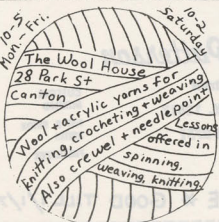 10-5
Mon.-Fri.
10-2
Saturday
The Wool House
28 Park St
Canton
Wool + acrylic yarns for
knitting, crocheting + weaving
Also crewel + needlepoint
Lessons
offered in
spinning,
weaving, knitting.